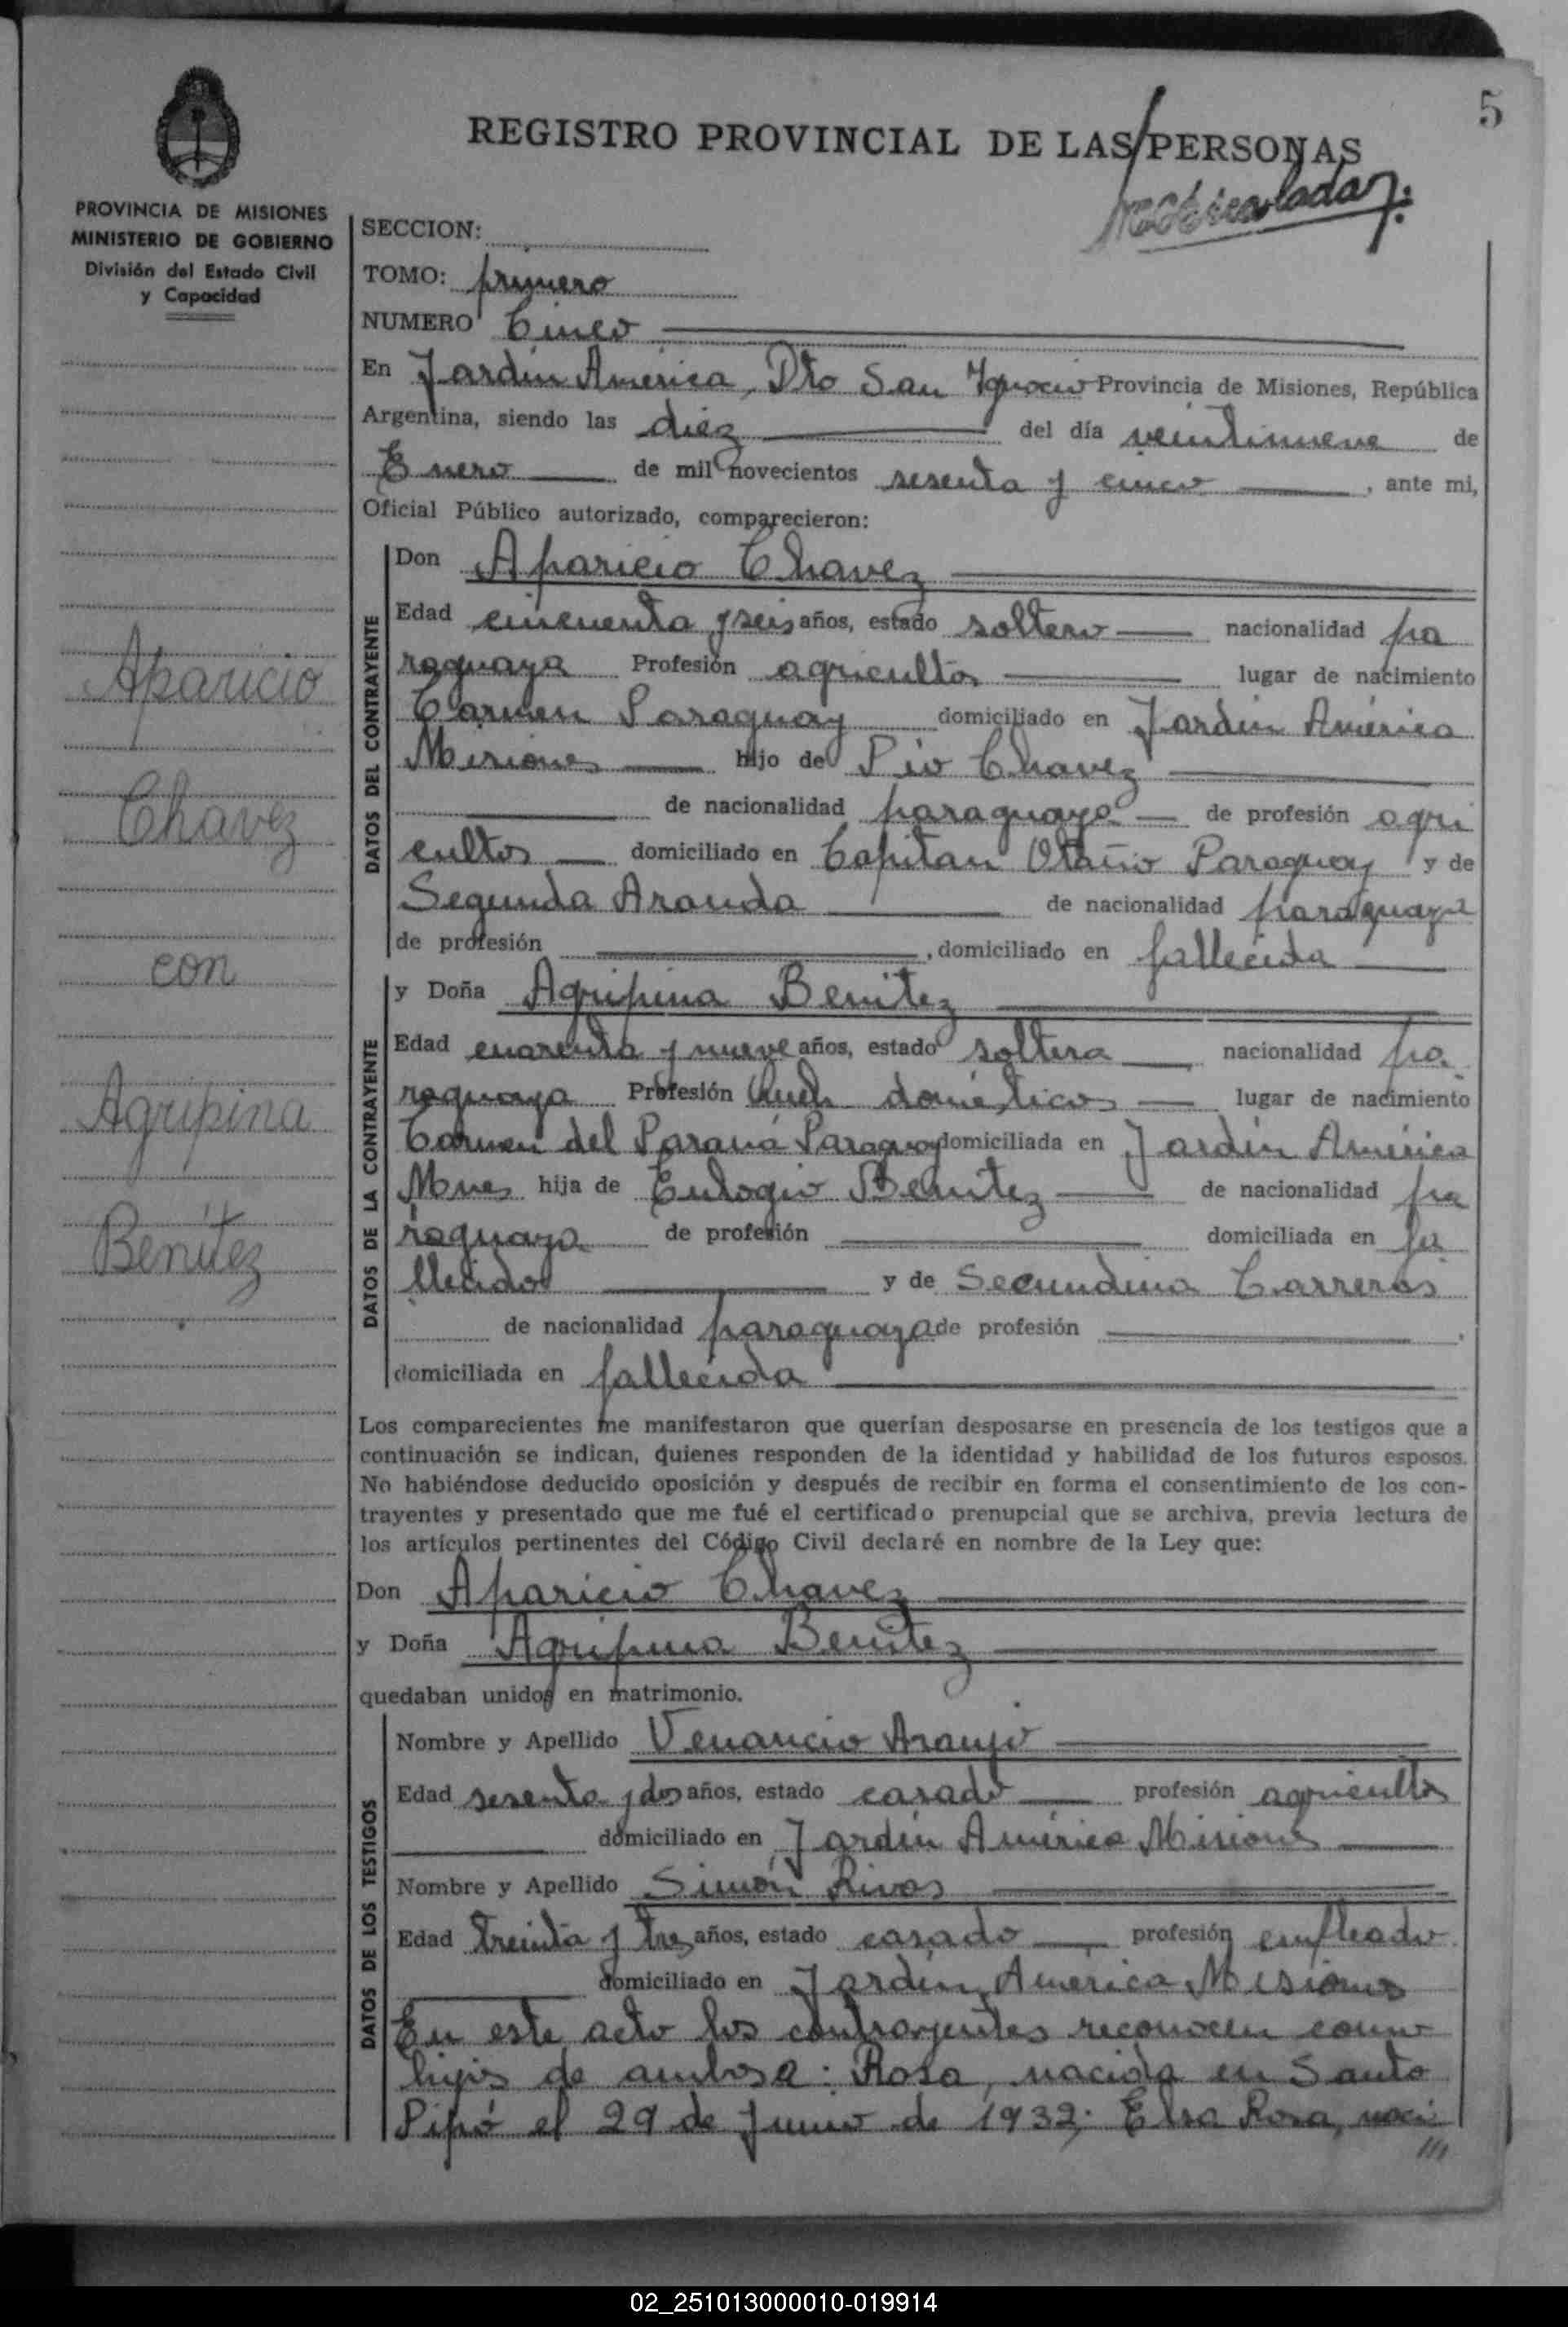 5
REGISTRO PROVINCIAL DE LAS PERSONAS
PROVINCIA DE MISIONES
MINISTERIO DE GOBIERNO
División del Estado Civil
y Capacidad
Aparicio
Chavez
con
Agripina
Benitez
SECCION:
TOMO: primero
NUMERO Cinco
En Jardín América, Dto San Ignacio Provincia de Misiones, República
Argentina, siendo las diez del día veintinueve de
Enero de mil novecientos sesenta y cinco, ante mi,
Oficial Público autorizado, comparecieron:
DATOS DEL CONTRAYENTE
Don Aparicio Chavez
Edad cincuenta y seis años, estado soltero nacionalidad pa
raguaya Profesión agricultor lugar de nacimiento
Carmen Paraguay domiciliado en Jardín América
Misiones hijo de Pio Chavez
de nacionalidad paraguaya de profesión agri
cultor domiciliado en Capitan Otaño Paraguay y de
Segunda Aranda de nacionalidad paraguaya
de profesión , domiciliado en fallecida
DATOS DE LA CONTRAYENTE
y Doña Agripina Benitez
Edad cuarenta y nueve años, estado soltera nacionalidad pa
raguaya Profesión Queh domésticos lugar de nacimiento
Carmen del Paraná Paraguay domiciliada en Jardín América
Mnes hija de Eulogio Benitez de nacionalidad pa
raguaya de profesión domiciliada en fa
llecido y de Secundina Carreras
de nacionalidad paraguaya de profesión
domiciliada en fallecida
Los comparecientes me manifestaron que querían desposarse en presencia de los testigos que a
continuación se indican, quienes responden de la identidad y habilidad de los futuros esposos.
No habiéndose deducido oposición y después de recibir en forma el consentimiento de los con-
trayentes y presentado que me fué el certificado prenupcial que se archiva, previa lectura de
los artículos pertinentes del Código Civil declaré en nombre de la Ley que:
Don Aparicio Chavez
y Doña Agripina Benitez
quedaban unidos en matrimonio.
DATOS DE LOS TESTIGOS
Nombre y Apellido Venancio Araujo
Edad sesenta y dos años, estado casado profesión agricultor
domiciliado en Jardín América Misiones
Nombre y Apellido Simón Rivas
Edad treinta y tres años, estado casado profesión empleado
domiciliado en Jardín América Misiones
En este acto los contrayentes reconocen como
hijos de ambos a: Rosa, nacida en Santo
Pipó el 29 de Junio de 1932; Elsa Rosa, naci
///
02_251013000010-019914